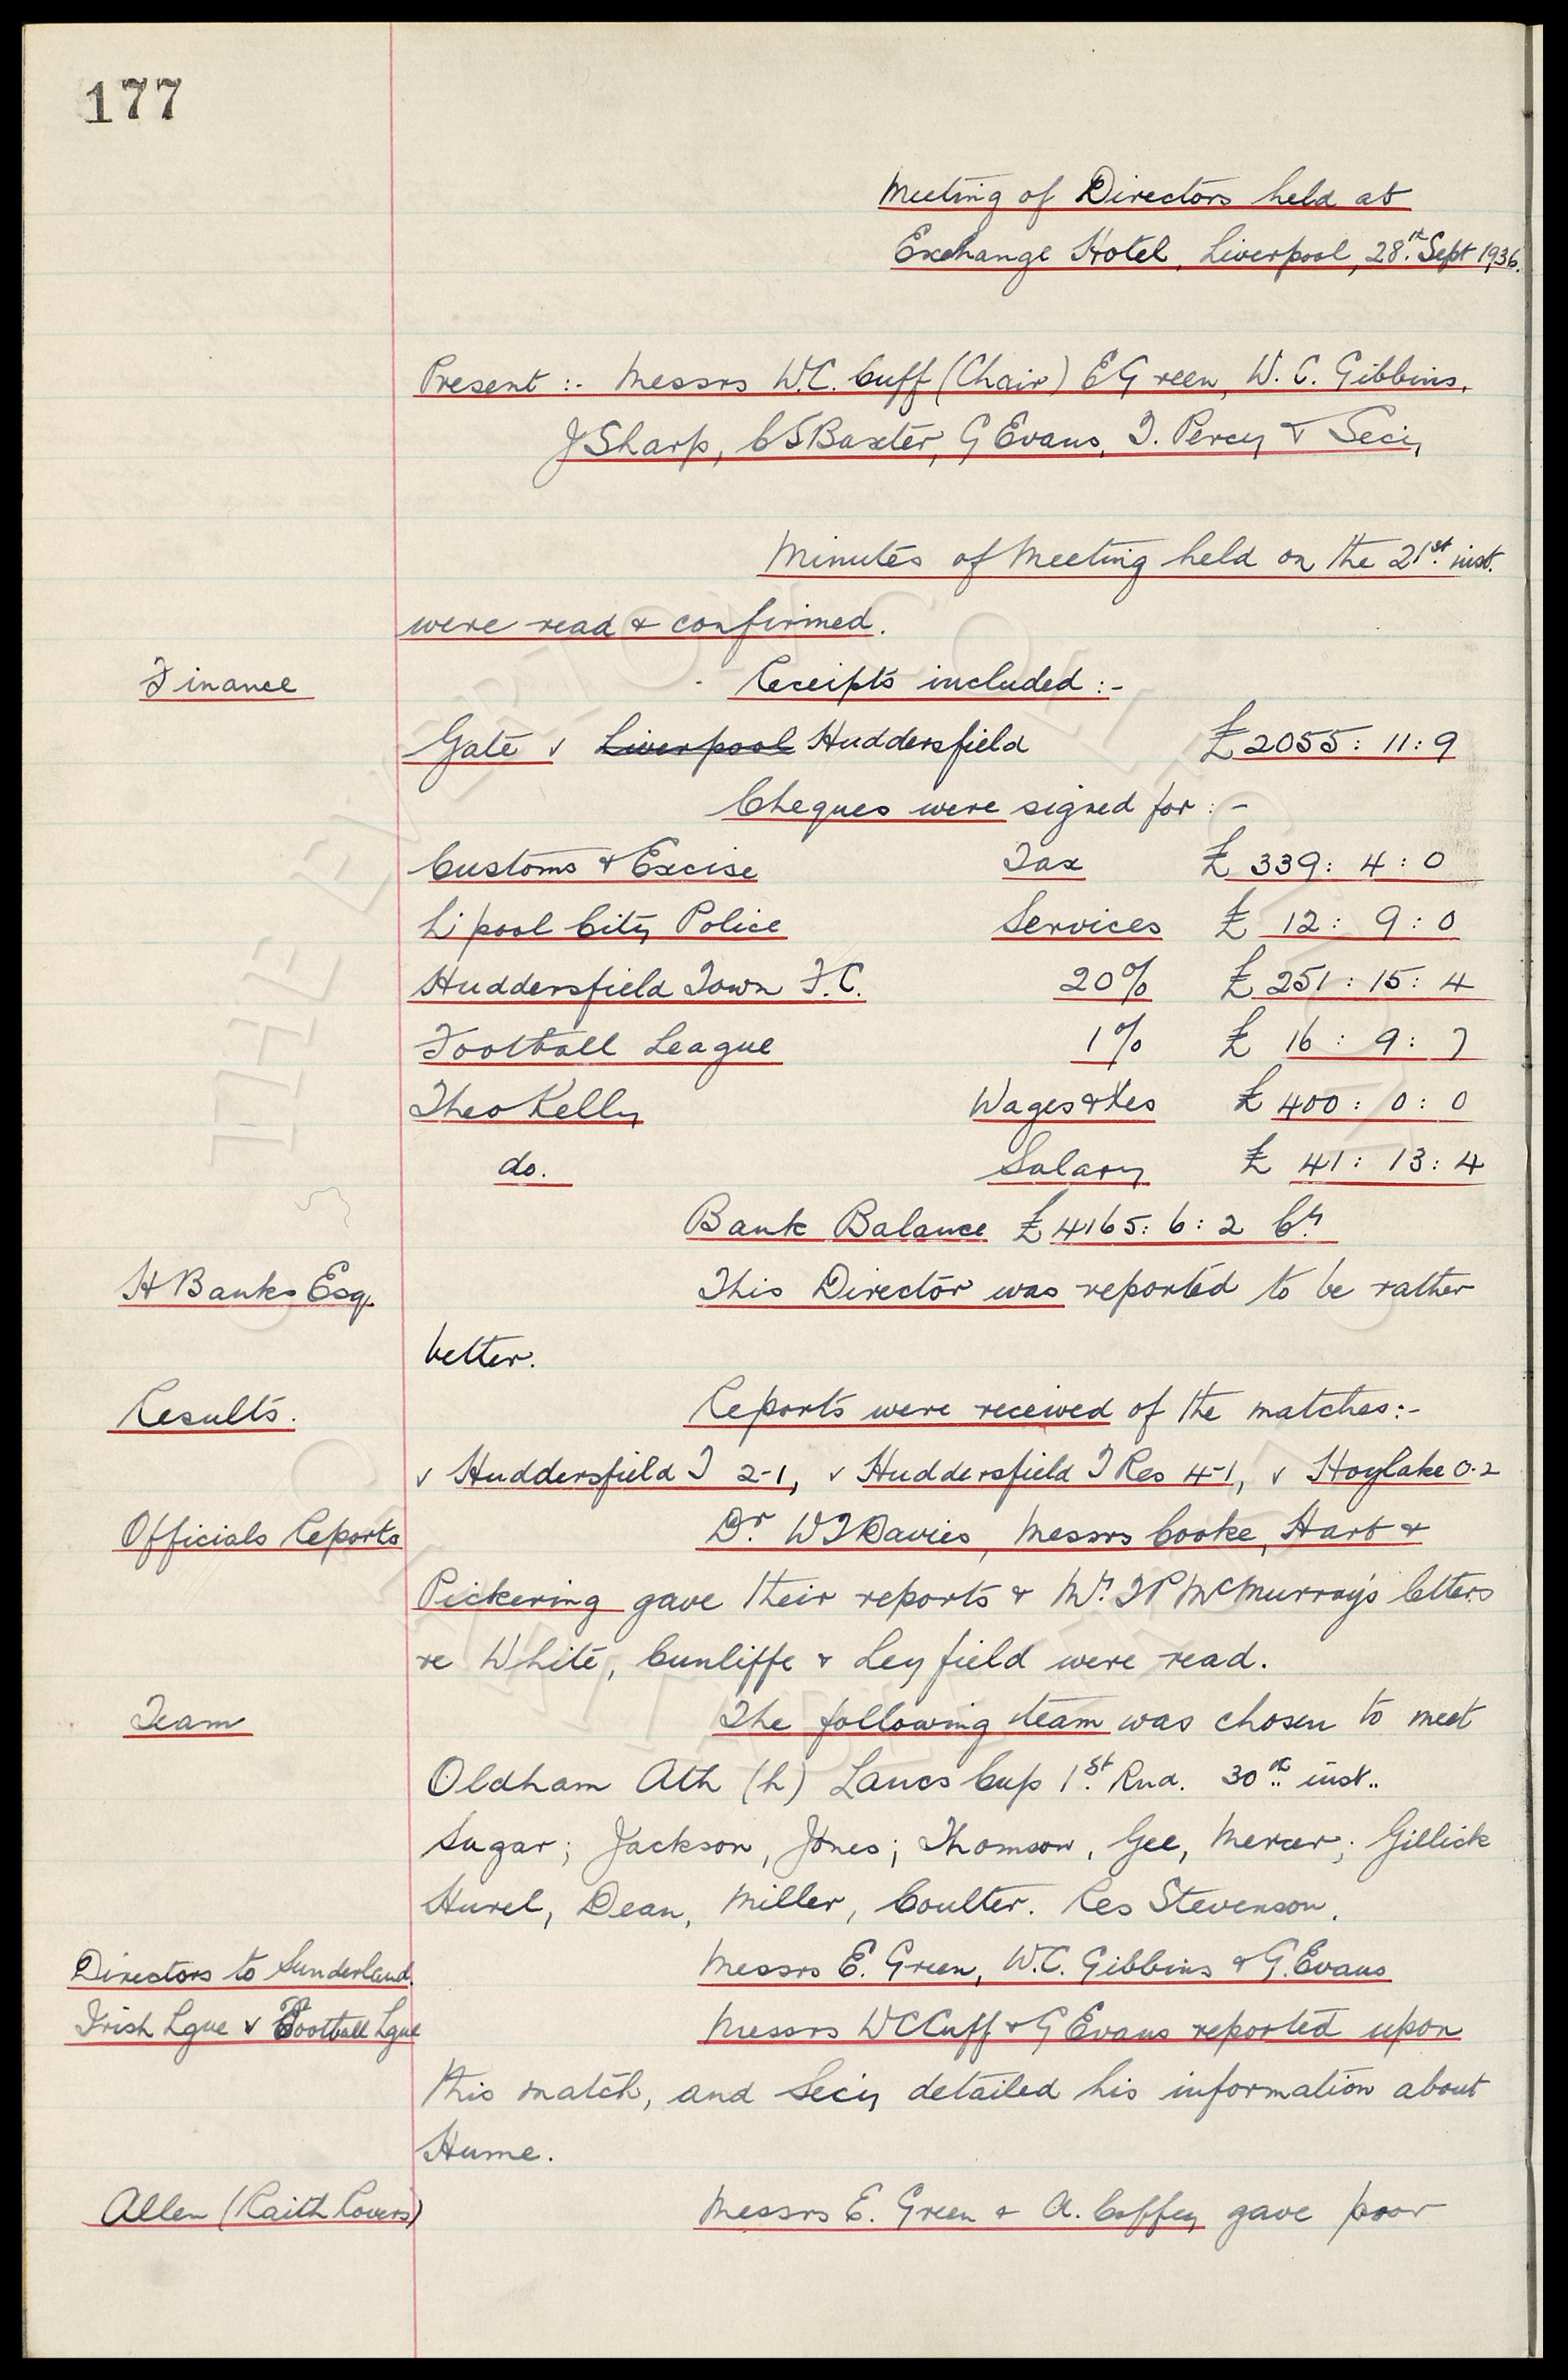 177
Meeting of Directors held at
Exchange Hotel, Liverpool, 28th Sept 1936.
Present :- Messrs W.C. Cuff (Chair) E Green, W. C. Gibbins,
J Sharp, C S Baxter, G Evans, T. Percy & Secy
Minutes of Meeting held on the 21st inst.
were read & confirmed.
Finance Receipts included :-
Gate v Liverpool Huddersfield £2055 : 11 : 9
Cheques were signed for :-
Customs & Excise Tax £ 339 : 4 : 0
L'pool City Police Services £ 12 : 9 : 0
Huddersfield Town F.C. 20% £ 251 : 15 : 4
Football League 1% £ 16 : 9 : 7
Theo Kelly Wages & Xes £ 400 : 0 : 0
do. Salary £ 41 : 13 : 4
Bank Balance £4165 : 6 : 2 Cr
H Banks Esq. This Director was reported to be rather
better.
Results. Reports were received of the matches:-
v Huddersfield T 2-1, v Huddersfield T Res 4-1, v Hoylake 0-2
Officials Reports Dr. W J Davies, Messrs Cooke, Hart &
Pickering gave their reports & Mr. T P McMurray's letters
re White, Cunliffe & Leyfield were read.
Team The following team was chosen to meet
Oldham Ath (h) Lancs Cup 1st Rnd. 30th inst..
Sugar; Jackson, Jones; Thomson, Gee, Mercer; Gillick
Hurel, Dean, Miller, Coulter. Res Stevenson.
Directors to Sunderland. Messrs E. Green, W.C. Gibbins & G. Evans
Irish Lgue v Football Lgue Messrs W C Cuff & G Evans reported upon
this match, and Secy detailed his information about
Hume.
Allen (Raith Rovers) Messrs E. Green & A. Coffey gave poor